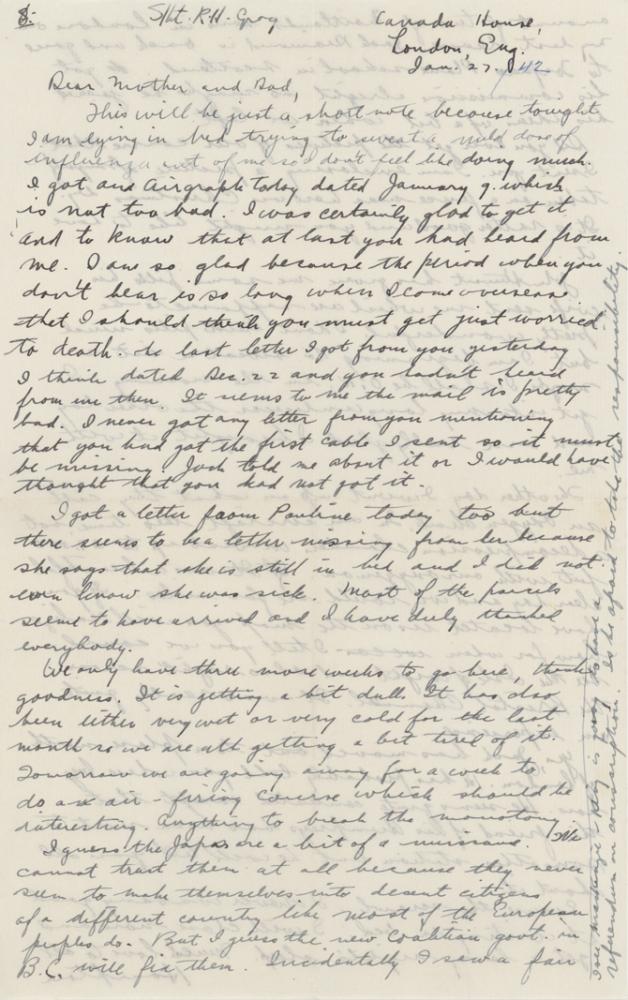 8.
S/Lt. R.H. Gray
Canada House,
London, Eng.
Jan. 27/42
Dear Mother and Dad,
This will be just a short note because tonight
I am lying in bed trying to sweat a mild dose of
influenza out of me so I don't feel like doing much.
I got and Airgraph today dated January 9. which
is not too bad. I was certainly glad to get it
and to know that at last you had heard from
me. I am so glad because the period when you
don't hear is so long when I come overseas
that I should think you must get just worried
to death. The last letter I got from you yesterday
I think dated Dec. 22 and you hadn't heard
from me then. It seems to me the mail is pretty
bad. I never got any letter from you mentioning
that you had got the first cable I sent so it must
be missing. Jack told me about it or I would have
thought that you had not got it.
I got a letter from Pauline today too but
there seems to be a letter missing from her because
she says that she is still in bed and I did not
even know she was sick. Most of the parcels
seem to have arrived and I have duly thanked
everybody.
We only have three more weeks to go here, thank
goodness. It is getting a bit dull. It has also
been either very wet or very cold for the last
month so we are all getting a bit tired of it.
Tomorrow we are going away for a week to
do an air-firing course which should be
interesting. Anything to break the monotony.
I guess the Japs are a bit of a nuisance. We
cannot trust them at all because they never
seem to make themselves into decent citizens
of a different country like most of the European
peoples do. But I guess the new coalition govt. in
B.C. will fix them. Incidentally I saw a fair
Mackenzie-King is going to have a
referendum on conscription. Is he afraid to take the responsibility.